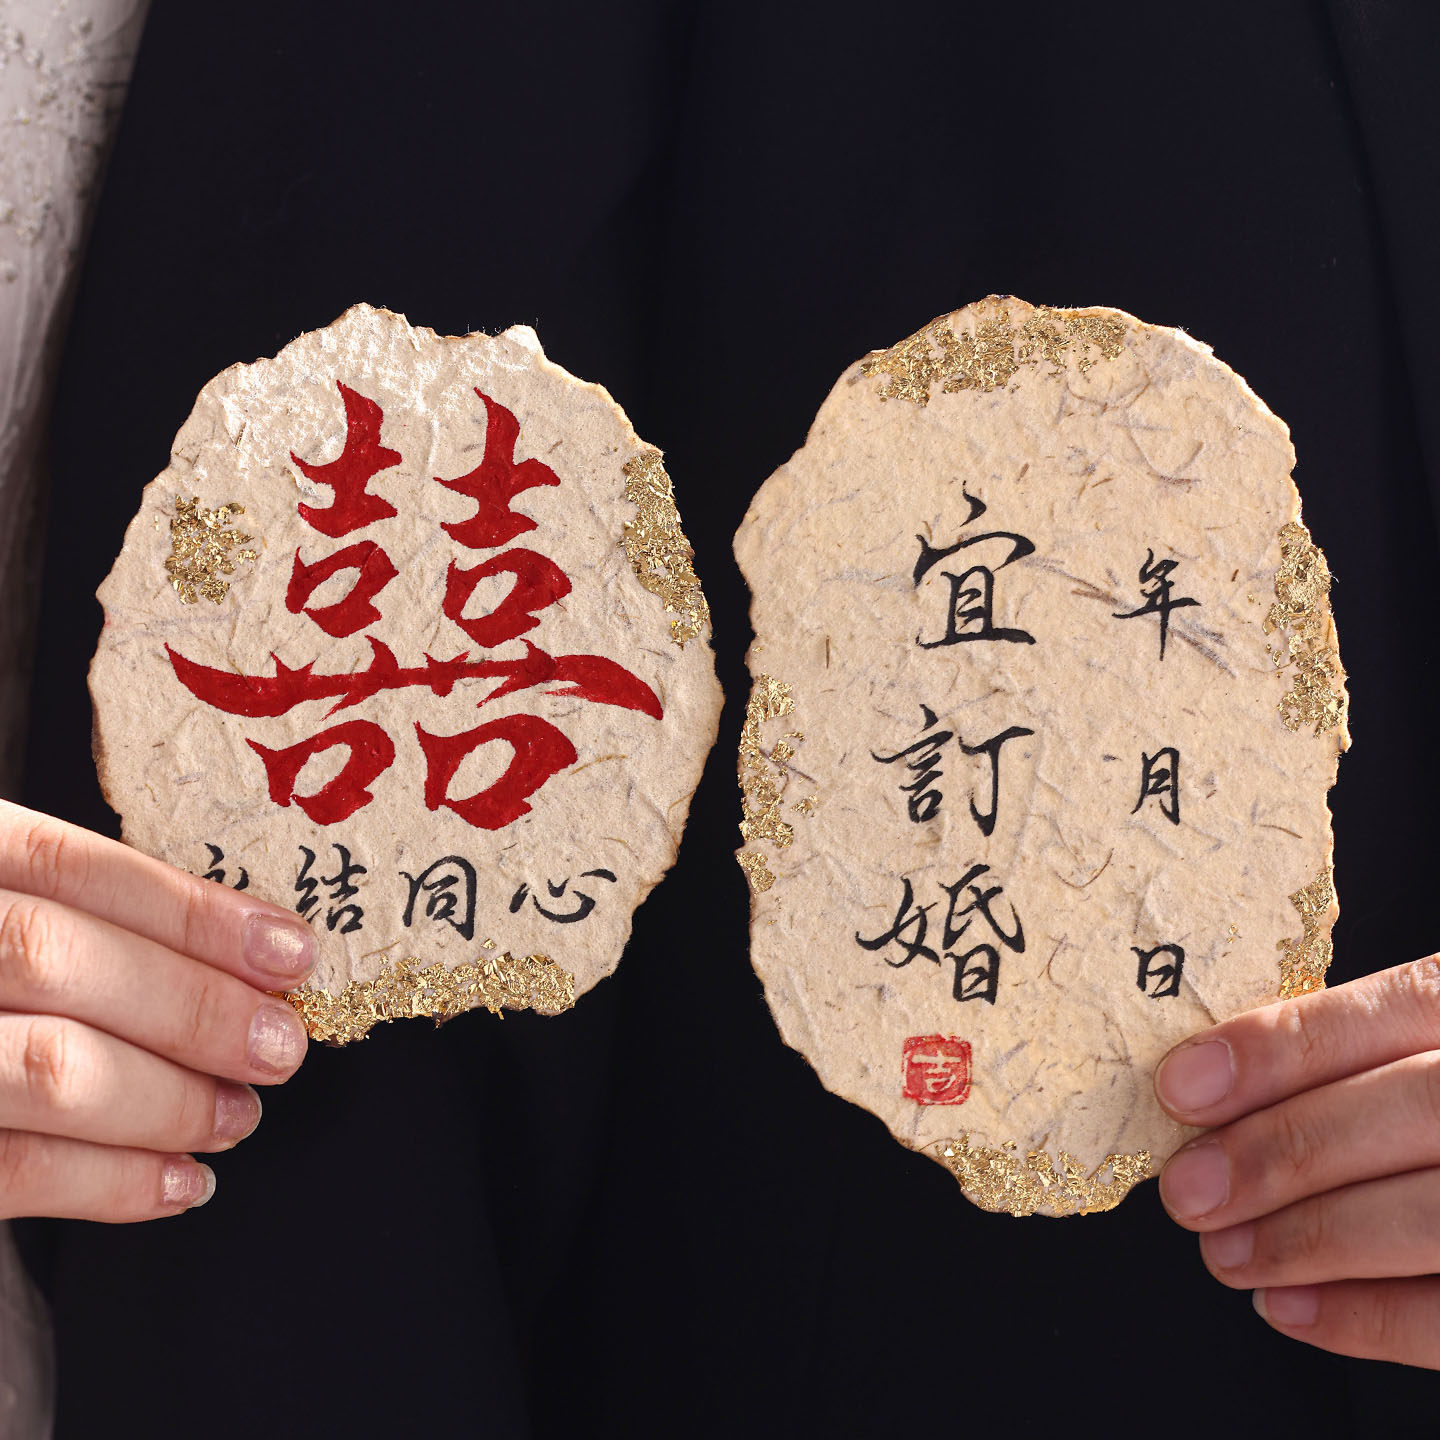 囍
永结同心
年月日
宜訂婚
吉